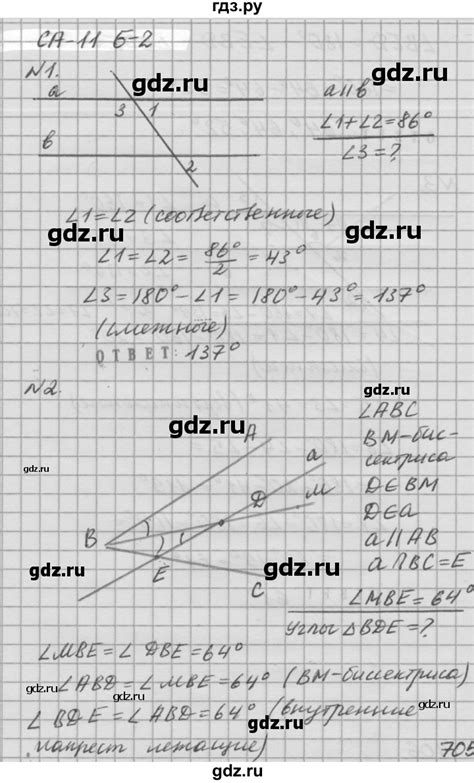 гдз.ру
СА-11 Б-2
№1.
a
3 1
b
2
a∥b
∠1+∠2=86°
∠3=?
∠1=∠2 (соответственное)
∠1=∠2= 86°/2 =43°
∠3=180°-∠1=180°-43°=137°
(смежное)
ОТВЕТ: 137°
№2.
∠ABC
BM-бис-
сектриса
D∈BM
D∈a
a∥AB
a∩BC=E
∠MBE=64°
углы △BDE=?
A
a
D
M
B
E
C
∠MBE=∠DBE=64°
∠ABD=∠MBE=64° (BM-биссектриса)
∠BDE=∠ABD=64° (внутренние
накрест лежащие)
705
gdz.ru
gdz.ru
gdz.ru
gdz.ru
gdz.ru
gdz.ru
gdz.ru
gdz.ru
gdz.ru
gdz.ru
gdz.ru
gdz.ru
gdz.ru